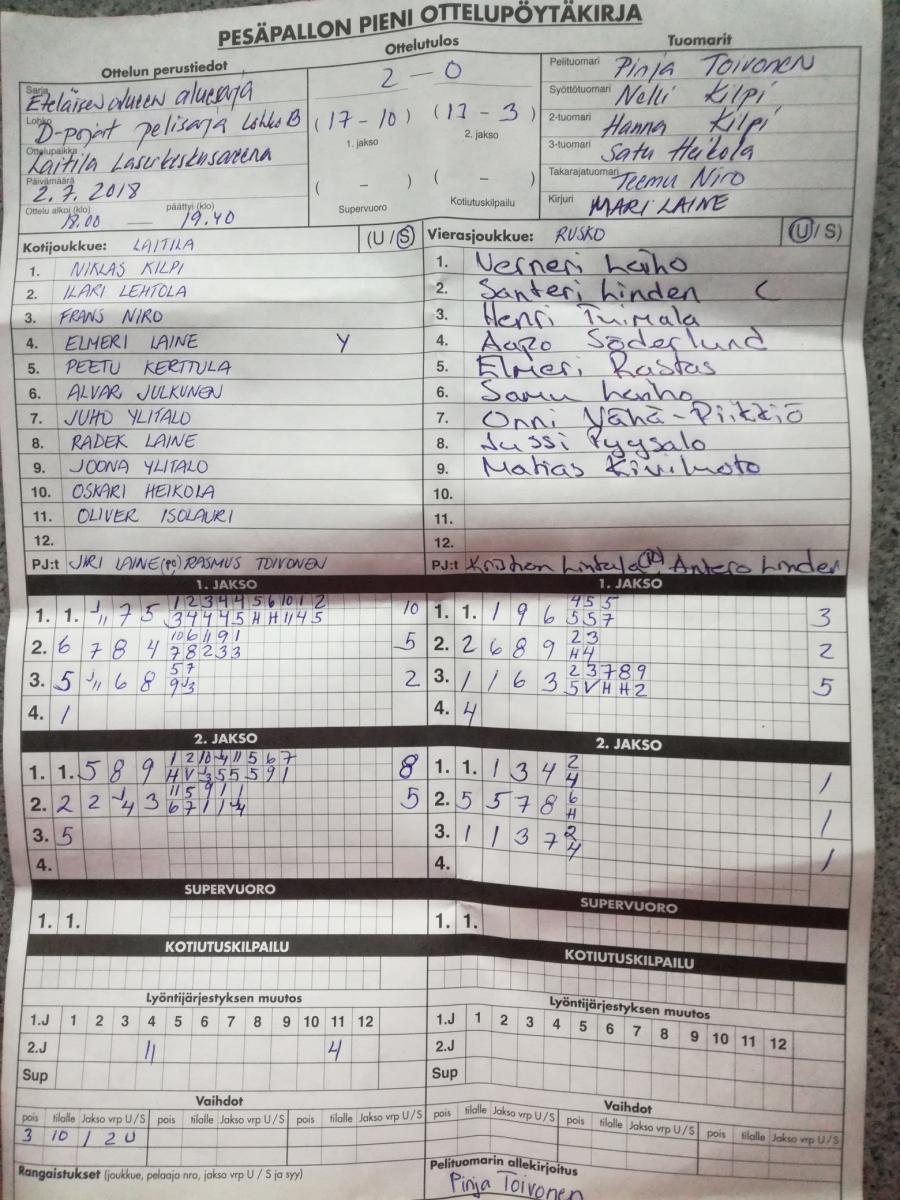 PESÄPALLON PIENI OTTELUPÖYTÄKIRJA
Ottelun perustiedot
Sarja
Eteläisen alueen aluesarja
Lohko
D-pojat pelisarja Lohko B
Ottelupaikka
Laitila Laserkeskusareena
Päivämäärä
2.7.2018
Ottelu alkoi (klo) päättyi (klo)
18.00 — 19.40
Ottelutulos
2 - 0
(17 - 10) (13 - 3)
1. jakso 2. jakso
( - ) ( - )
Supervuoro Kotiutuskilpailu
Tuomarit
Pelituomari Pinja Toivonen
Syöttötuomari Nelli Kilpi
2-tuomari Hanna Kilpi
3-tuomari Satu Heikola
Takarajatuomari Teemu Niro
Kirjuri MARI LAINE
Kotijoukkue: LAITILA (U/S)
1. NIKLAS KILPI
2. ILARI LEHTOLA
3. FRANS NIRO
4. ELMERI LAINE Y
5. PEETU KERTTULA
6. ALVAR JULKUNEN
7. JUHO YLITALO
8. RADEK LAINE
9. JOONA YLITALO
10. OSKARI HEIKOLA
11. OLIVER ISOLAURI
12.
PJ:t JIRI LAINE (pp) RASMUS TOIVONEN
Vierasjoukkue: RUSKO (U/S)
1. Verneri Laiho
2. Santeri Linden C
3. Henri Tuimala
4. Aapo Söderlund
5. Elmeri Rastas
6. Samu Laiho
7. Onni Vähä-Piikkiö
8. Jussi Pyysalo
9. Matias Kivimoto
10.
11.
12.
PJ:t Antero Linden
1. JAKSO
1. 1. 7 5 10
1 2 3 4 4 5 6 10 1 2
3 4 4 4 5 H H 11 4 5
2. 6 7 8 4 5
10 6 11 9 1
7 8 2 3 3
3. 5 6 8 2
5 7
4. 1
1. JAKSO
1. 1. 1 9 6 3
4 5 5
5 5 7
2. 2 6 8 9 2
2 3
H 4
3. 1 1 6 3 5
2 3 7 8 9
5 V H H 2
4. 4
2. JAKSO
1. 1. 5 8 9 8
2. 2 2 3 5
3. 5
4.
2. JAKSO
1. 1. 1 3 4 1
2
4
2. 5 5 7 8 1
6
H
3. 1 1 3 7 1
2
4
4.
SUPERVUORO
1. 1.
SUPERVUORO
1. 1.
KOTIUTUSKILPAILU
KOTIUTUSKILPAILU
Lyöntijärjestyksen muutos
1.J 1 2 3 4 5 6 7 8 9 10 11 12
2.J 11 4
Sup
Lyöntijärjestyksen muutos
1.J 1 2 3 4 5 6 7 8 9 10 11 12
2.J
Sup
Vaihdot
pois tilalle Jakso vrp U/S pois tilalle Jakso vrp U/S pois tilalle Jakso vrp U/S
3 10 1 2 U
Vaihdot
pois tilalle Jakso vrp U/S pois tilalle Jakso vrp U/S pois tilalle Jakso vrp U/S
Rangaistukset (joukkue, pelaaja nro, jakso vrp U / S ja syy)
Pelituomarin allekirjoitus
Pinja Toivonen